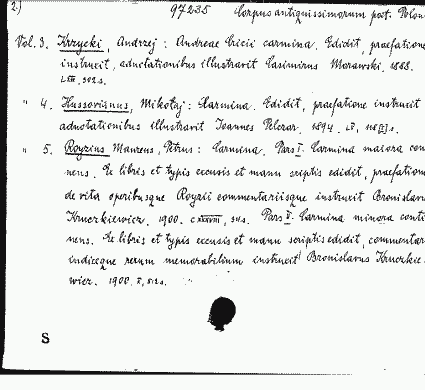 2.) 97235 Corpus antiquissimorum poet. Polon
Vol. 3. Krzycki, Andrzej: Andreae Cricii carmina. Edidit, praefatione
instruxit, adnotationibus illustravit Casimirus Morawski. 1888.
LIII, 302 s.
" 4. Hussovianus, Mikołaj: Carmina. Edidit, praefatione instruxit
adnotationibus illustravit Joannes Pelczar. 1894. s.
" 5. Royzius Maureus, Petrus: Carmina. Pars I. Carmina maiora con
nens. Ex libris et typis excusis et manu scriptis edidit, praefation
de vita operibusque Royzii commentariisque instruxit Bronislav
Kruczkiewicz. 1900. s. Pars II. Carmina minora conti
nens. Ex libris et typis excusis et manu scriptis edidit, commentar
indiceque rerum memorabilium instruxit Bronislavus Kruczkie
wicz. 1900. X, 512 s.
S